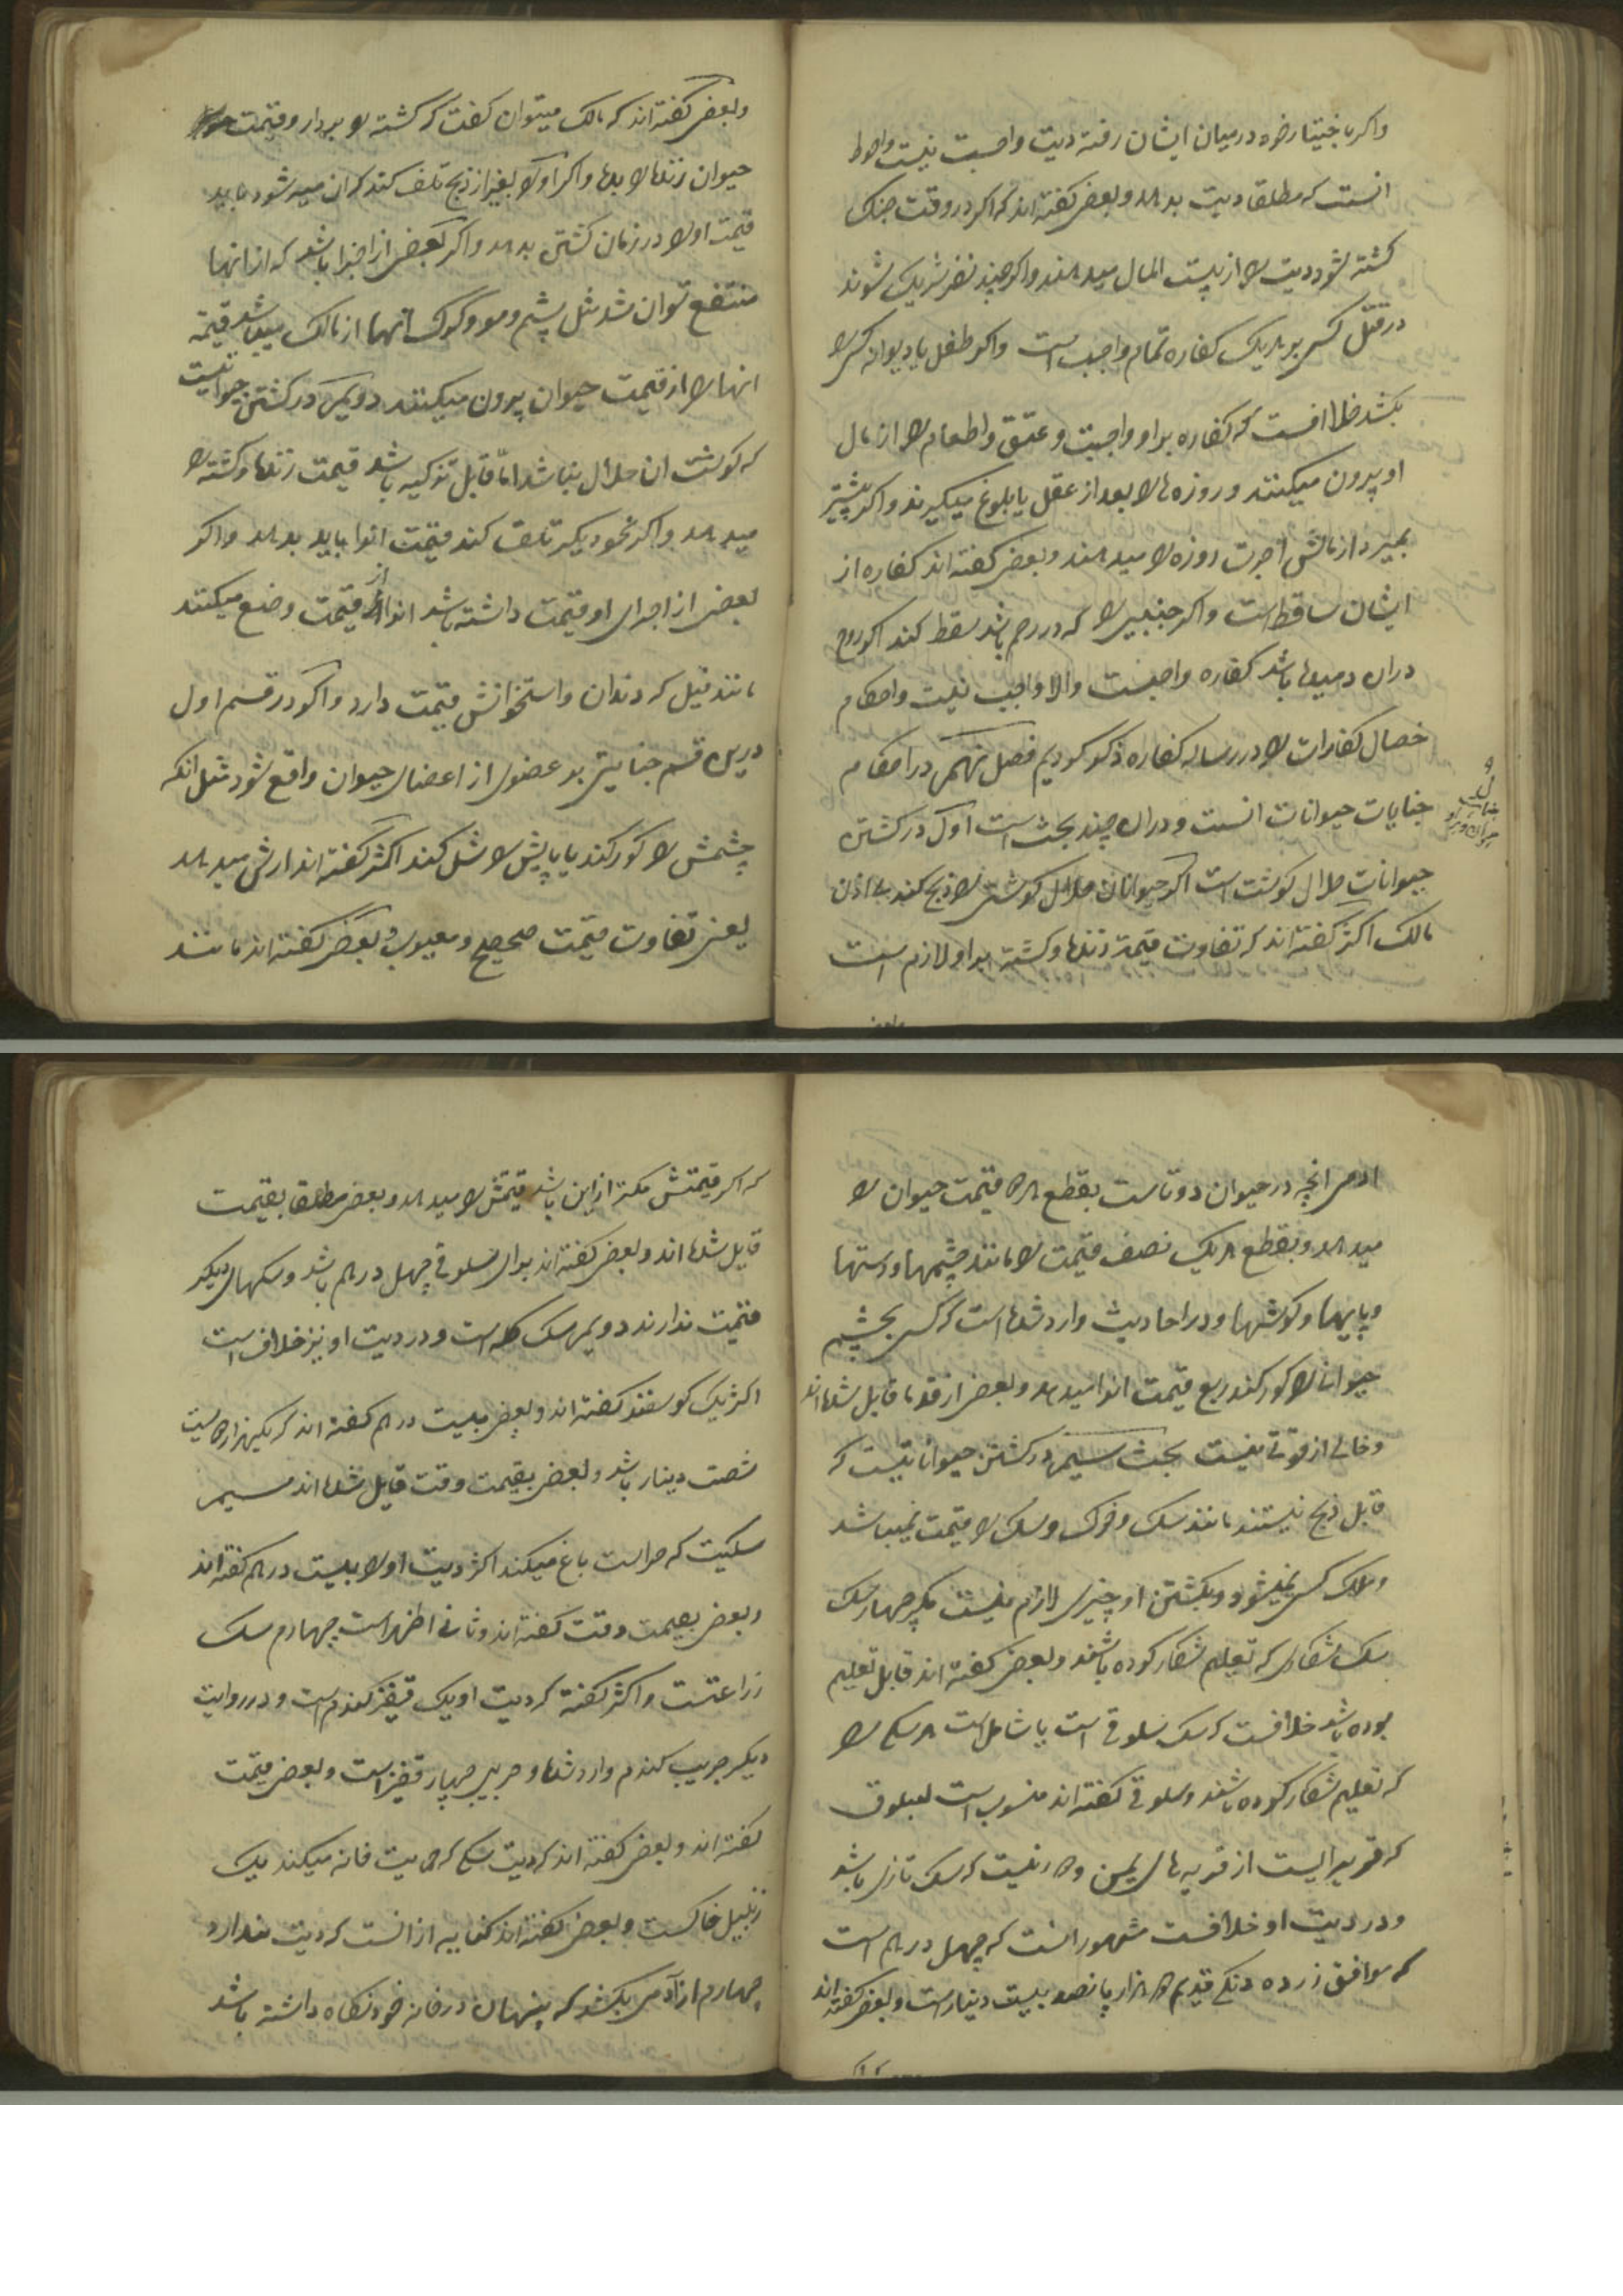 واکر باختیار خود درمیان ایشان رفته دیت واجب نیست واحوط
انست که مطلقا دیت بدهد وبعضی کفته اند که اکر در وقت جنک
کشته شود دیت را از بیت المال میدهند واکر چند نفر شریک شوند
در قتل کسی بر هر یک کفاره تمام واجب است واکر طفل یا دیوانه کسی را
بکشد خلافست که کفاره بر او واجبست وعتق واطعام را از مال
او بیرون میکنند وروزه ها را بعد از عقل یا بلوغ میکیرند واکر پیشتر
بمیرد از مالش اجرت روزه را میدهند وبعضی کفته اند کفاره از
ایشان ساقط است واکر جنینی را که در رحم باشد سقط کند اکر روح
دران دمیده باشد کفاره واجبست والا واجب نیست واحکام
خصال کفارات را در رساله کفاره ذکر کردیم فصل نهم در احکام
جنایات حیوانات انست ودران چند بحث است اول در کشتن
حیوانات حلال کوشت است اکر حیوانات حلال کوشتی را ذبح کند بی اذن
مالک اکثر کفته اند که تفاوت قیمت زنده وکشته بر او لازم است
وبعضی کفته اند که مالک میتوان کفت که کشته را بردار وقیمت
حیوان زنده را بده واکر اورا بغیر از ذبح تلف کند که ان میته شود باید
قیمت اورا در زمان کشتن بدهد واکر بعضی از اجزا باشد که از انها
منتفع توان شد مثل پشم ومو وکرک انها از مالک میباشد قیمة
انها را از قیمت حیوان بیرون میکنند دویم در کشتن حیوانیست
که کوشت ان حلال نباشد اما قابل تذکیه باشد قیمت زنده وکشته را
میدهد واکر بنحو دیکر تلف کند قیمت انرا باید بدهد واکر
بعضی از اجزای او قیمت داشته باشد انرا از قیمت وضع میکنند
مانند فیل که دندان واستخوانش قیمت دارد واکر در قسم اول
درین قسم جنایتی بر عضوی از اعضای حیوان واقع شود مثل انکه
چشمش را کور کند یا پایش را شل کند اکثر کفته اند ارش میدهد
یعنی تفاوت قیمت صحیح ومعیوب وبعضی کفته اند مانند
ادمی انچه در حیوان دوتاست بقطع هر دو قیمت حیوان را
میدهد وبقطع هر یک نصف قیمت را مانند چشمها ودستها
وپایها وکوشها ودر احادیث وارد شده است که کسی بچشم
حیوانا را کور کند ربع قیمت انرا میدهد وبعضی از قدما قایل شده اند
وخالی از قوتی نیست بحث سیم در کشتن حیواناتیست که
قابل ذبح نیستند مانند سک وخوک وسک را قیمت نمیباشد
وملک کسی نمیشود وبکشتن او چیزی لازم نیست مکر چهار سک
سک شکاری که تعلیم شکار کرده باشند وبعضی کفته اند قابل تعلیم
بوده باشد خلافست که سک سلوقی است یا شامل است هر سکی را
که تعلیم شکار کرده باشند وسلوقی کفته اند منسوب است بسلوق
که قریه ایست از قریه های یمن ... که سک تازی باشد
ودر دیت او خلافست مشهور انست که چهل درهم است
که موافق زر ده دنکی قدیم دو هزار پانصد بیست دینار است وبعضی کفته اند
که اکر قیمتش کمتر از این باشد قیمتش را میدهد وبعضی مطلقا بقیمت
قایل شده اند وبعضی کفته اند برای سلوقی چهل درهم باشد وسکهای دیکر
قیمت ندارند دویم سک کله است ودر دیت او نیز خلاف است
اکثر یک کوسفند کفته اند وبعضی بیست درهم کفته اند که یکهزار دویست
شصت دینار باشد وبعضی بقیمت وقت قایل شده اند سیم
سکیست که حراست باغ میکند اکثر دیت اورا بیست درهم کفته اند
وبعضی بقیمت وقت کفته اند وثانی اظهر است چهارم سک
زراعتست واکثر کفته که دیت او یک قفیز کندم است ودر روایت
دیکر جریب کندم وارد شده وجریب چهار قفیز است وبعضی قیمت
کفته اند وبعضی کفته اند که دیت سکی که حمایت خانه میکند یک
زنبیل خاکست وبعضی کفته اند کنایه از انست که دیت ندارد
چهارم از آدمی بکشد که پنهان در خانه خود نکاه داشته باشد